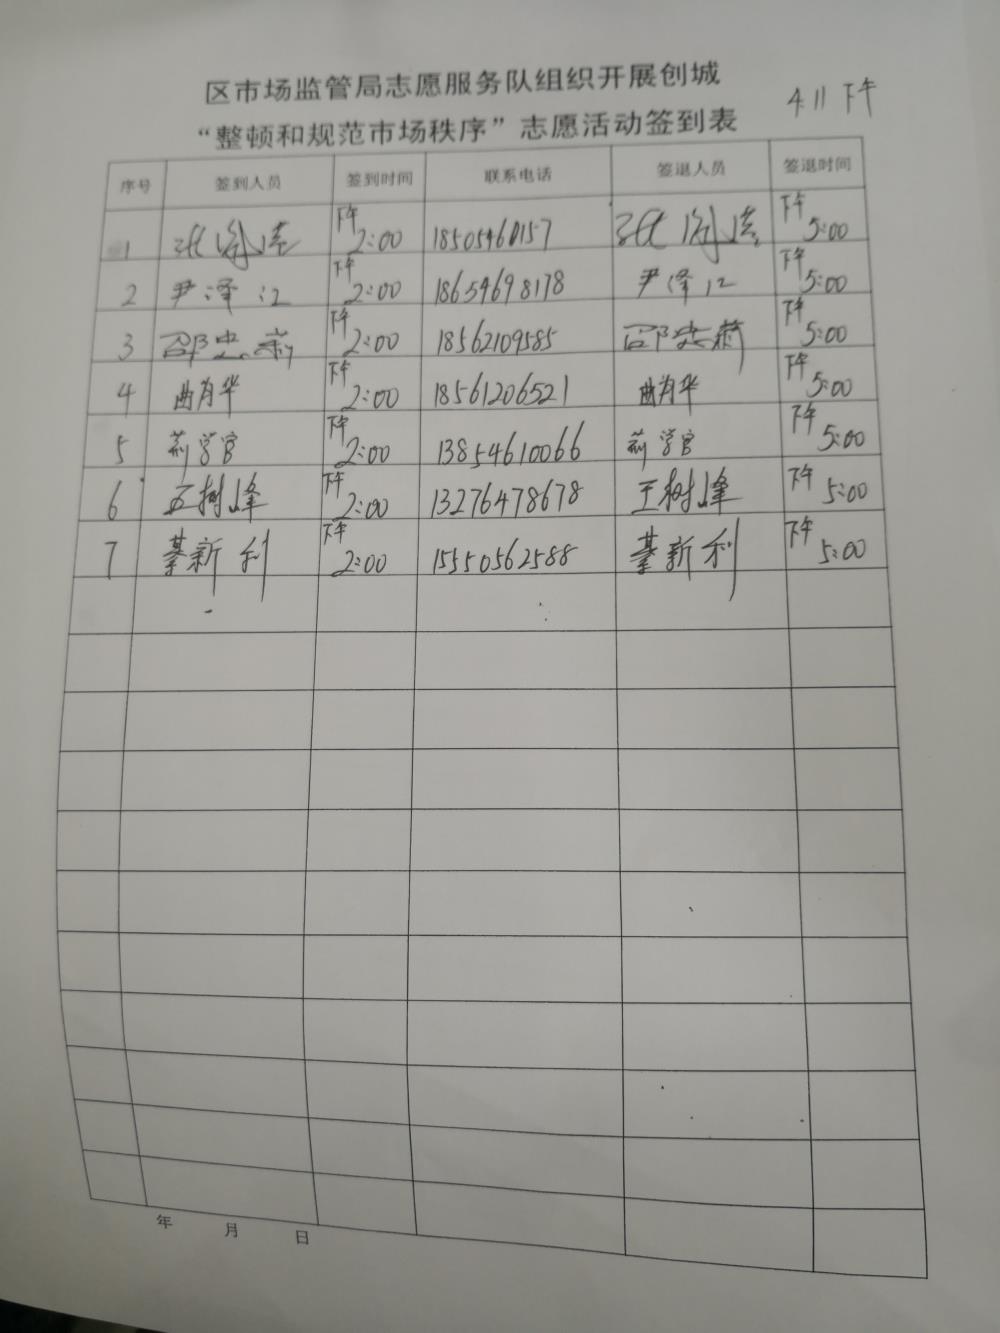 区市场监管局志愿服务队组织开展创城
4.11 下午
“整顿和规范市场秩序”志愿活动签到表
序号 签到人员 签到时间 联系电话 签退人员 签退时间
1 张 下午 2:00 18505460157 张 下午 5:00
2 尹泽江 下午 2:00 18654698178 尹泽江 下午 5:00
3 邵忠莉 下午 2:00 18562109585 邵忠莉 下午 5:00
4 曲肖华 下午 2:00 18561206521 曲肖华 下午 5:00
5 荆学官 下午 2:00 13854610066 荆学官 下午 5:00
6 王树峰 下午 2:00 13276478678 王树峰 下午 5:00
7 綦新利 下午 2:00 15550562588 綦新利 下午 5:00
年 月 日